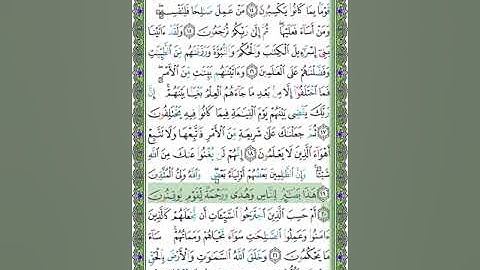 قَوْمًا بِمَا كَانُوا۟ يَكْسِبُونَ ١٤ مَنْ عَمِلَ صَٰلِحًا فَلِنَفْسِهِۦ
وَمَنْ أَسَآءَ فَعَلَيْهَا ثُمَّ إِلَىٰ رَبِّكُمْ تُرْجَعُونَ ١٥ وَلَقَدْ ءَاتَيْنَا
بَنِىٓ إِسْرَٰٓءِيلَ ٱلْكِتَٰبَ وَٱلْحُكْمَ وَٱلنُّبُوَّةَ وَرَزَقْنَٰهُم مِّنَ ٱلطَّيِّبَٰتِ
وَفَضَّلْنَٰهُمْ عَلَى ٱلْعَٰلَمِينَ ١٦ وَءَاتَيْنَٰهُم بَيِّنَٰتٍ مِّنَ ٱلْأَمْرِ
فَمَا ٱخْتَلَفُوٓا۟ إِلَّا مِنۢ بَعْدِ مَا جَآءَهُمُ ٱلْعِلْمُ بَغْيًۢا بَيْنَهُمْ إِنَّ
رَبَّكَ يَقْضِى بَيْنَهُمْ يَوْمَ ٱلْقِيَٰمَةِ فِيمَا كَانُوا۟ فِيهِ يَخْتَلِفُونَ
١٧ ثُمَّ جَعَلْنَٰكَ عَلَىٰ شَرِيعَةٍ مِّنَ ٱلْأَمْرِ فَٱتَّبِعْهَا وَلَا تَتَّبِعْ
أَهْوَآءَ ٱلَّذِينَ لَا يَعْلَمُونَ ١٨ إِنَّهُمْ لَن يُغْنُوا۟ عَنكَ مِنَ ٱللَّهِ
شَيْـًٔا وَإِنَّ ٱلظَّٰلِمِينَ بَعْضُهُمْ أَوْلِيَآءُ بَعْضٍ وَٱللَّهُ وَلِىُّ ٱلْمُتَّقِينَ
١٩ هَٰذَا بَصَٰٓئِرُ لِلنَّاسِ وَهُدًى وَرَحْمَةٌ لِّقَوْمٍ يُوقِنُونَ
٢٠ أَمْ حَسِبَ ٱلَّذِينَ ٱجْتَرَحُوا۟ ٱلسَّيِّـَٔاتِ أَن نَّجْعَلَهُمْ كَٱلَّذِينَ
ءَامَنُوا۟ وَعَمِلُوا۟ ٱلصَّٰلِحَٰتِ سَوَآءً مَّحْيَاهُمْ وَمَمَاتُهُمْ سَآءَ
مَا يَحْكُمُونَ ٢١ وَخَلَقَ ٱللَّهُ ٱلسَّمَٰوَٰتِ وَٱلْأَرْضَ بِٱلْحَقِّ